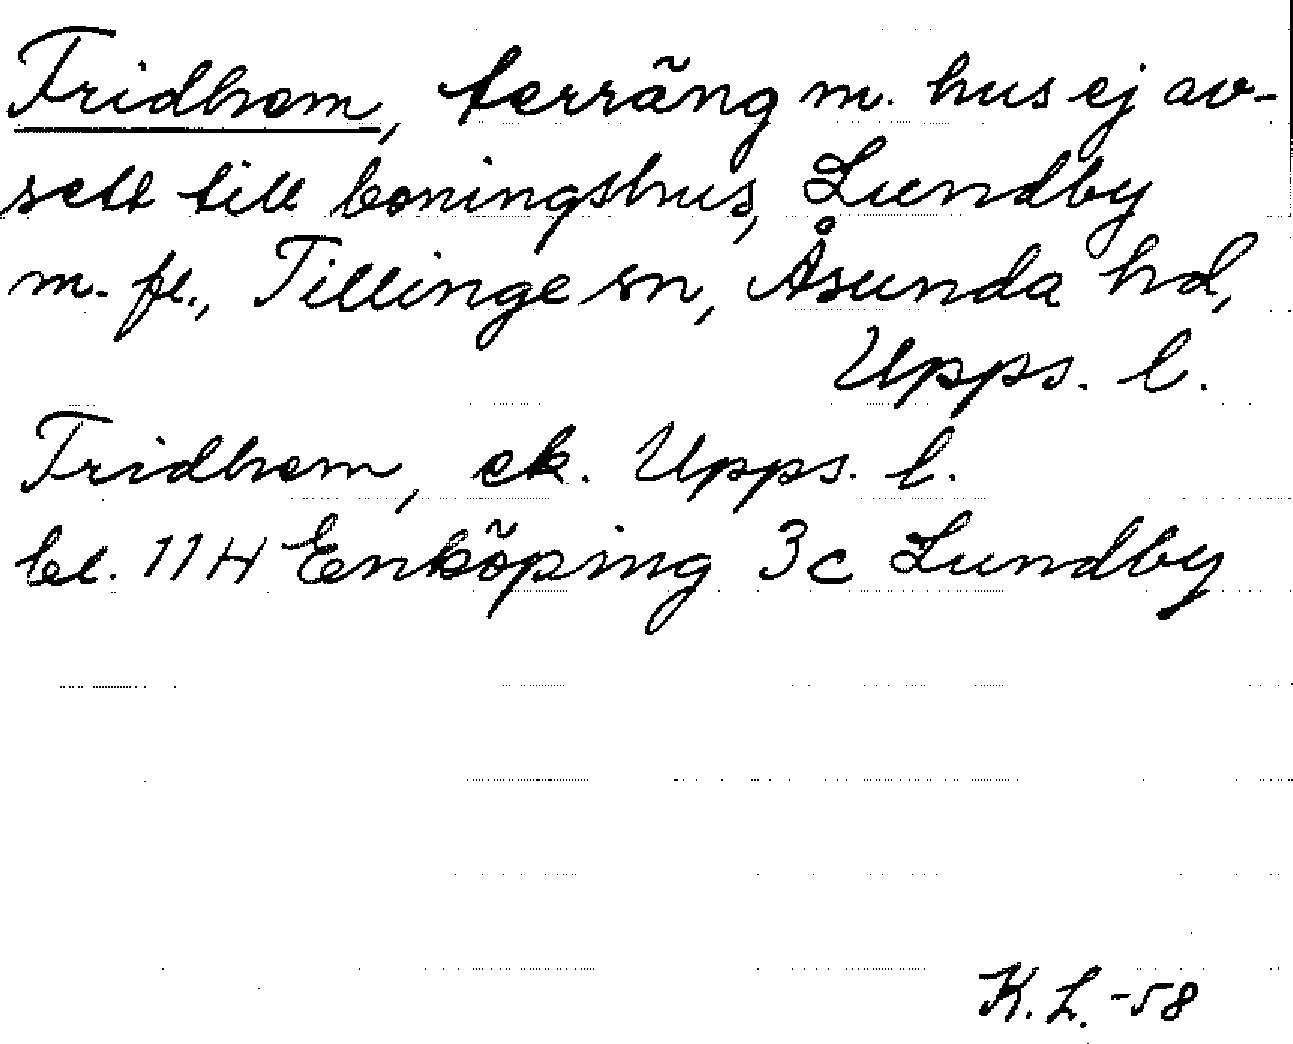 Fridhem, terräng m. hus ej av-
sett till boningshus, Lundby
m. fl., Tillinge sn, Åsunda hd,
Upps. l.
Fridhem, ek. Upps. l.
bl. 11H Enköping 3c Lundby
K. L. -58